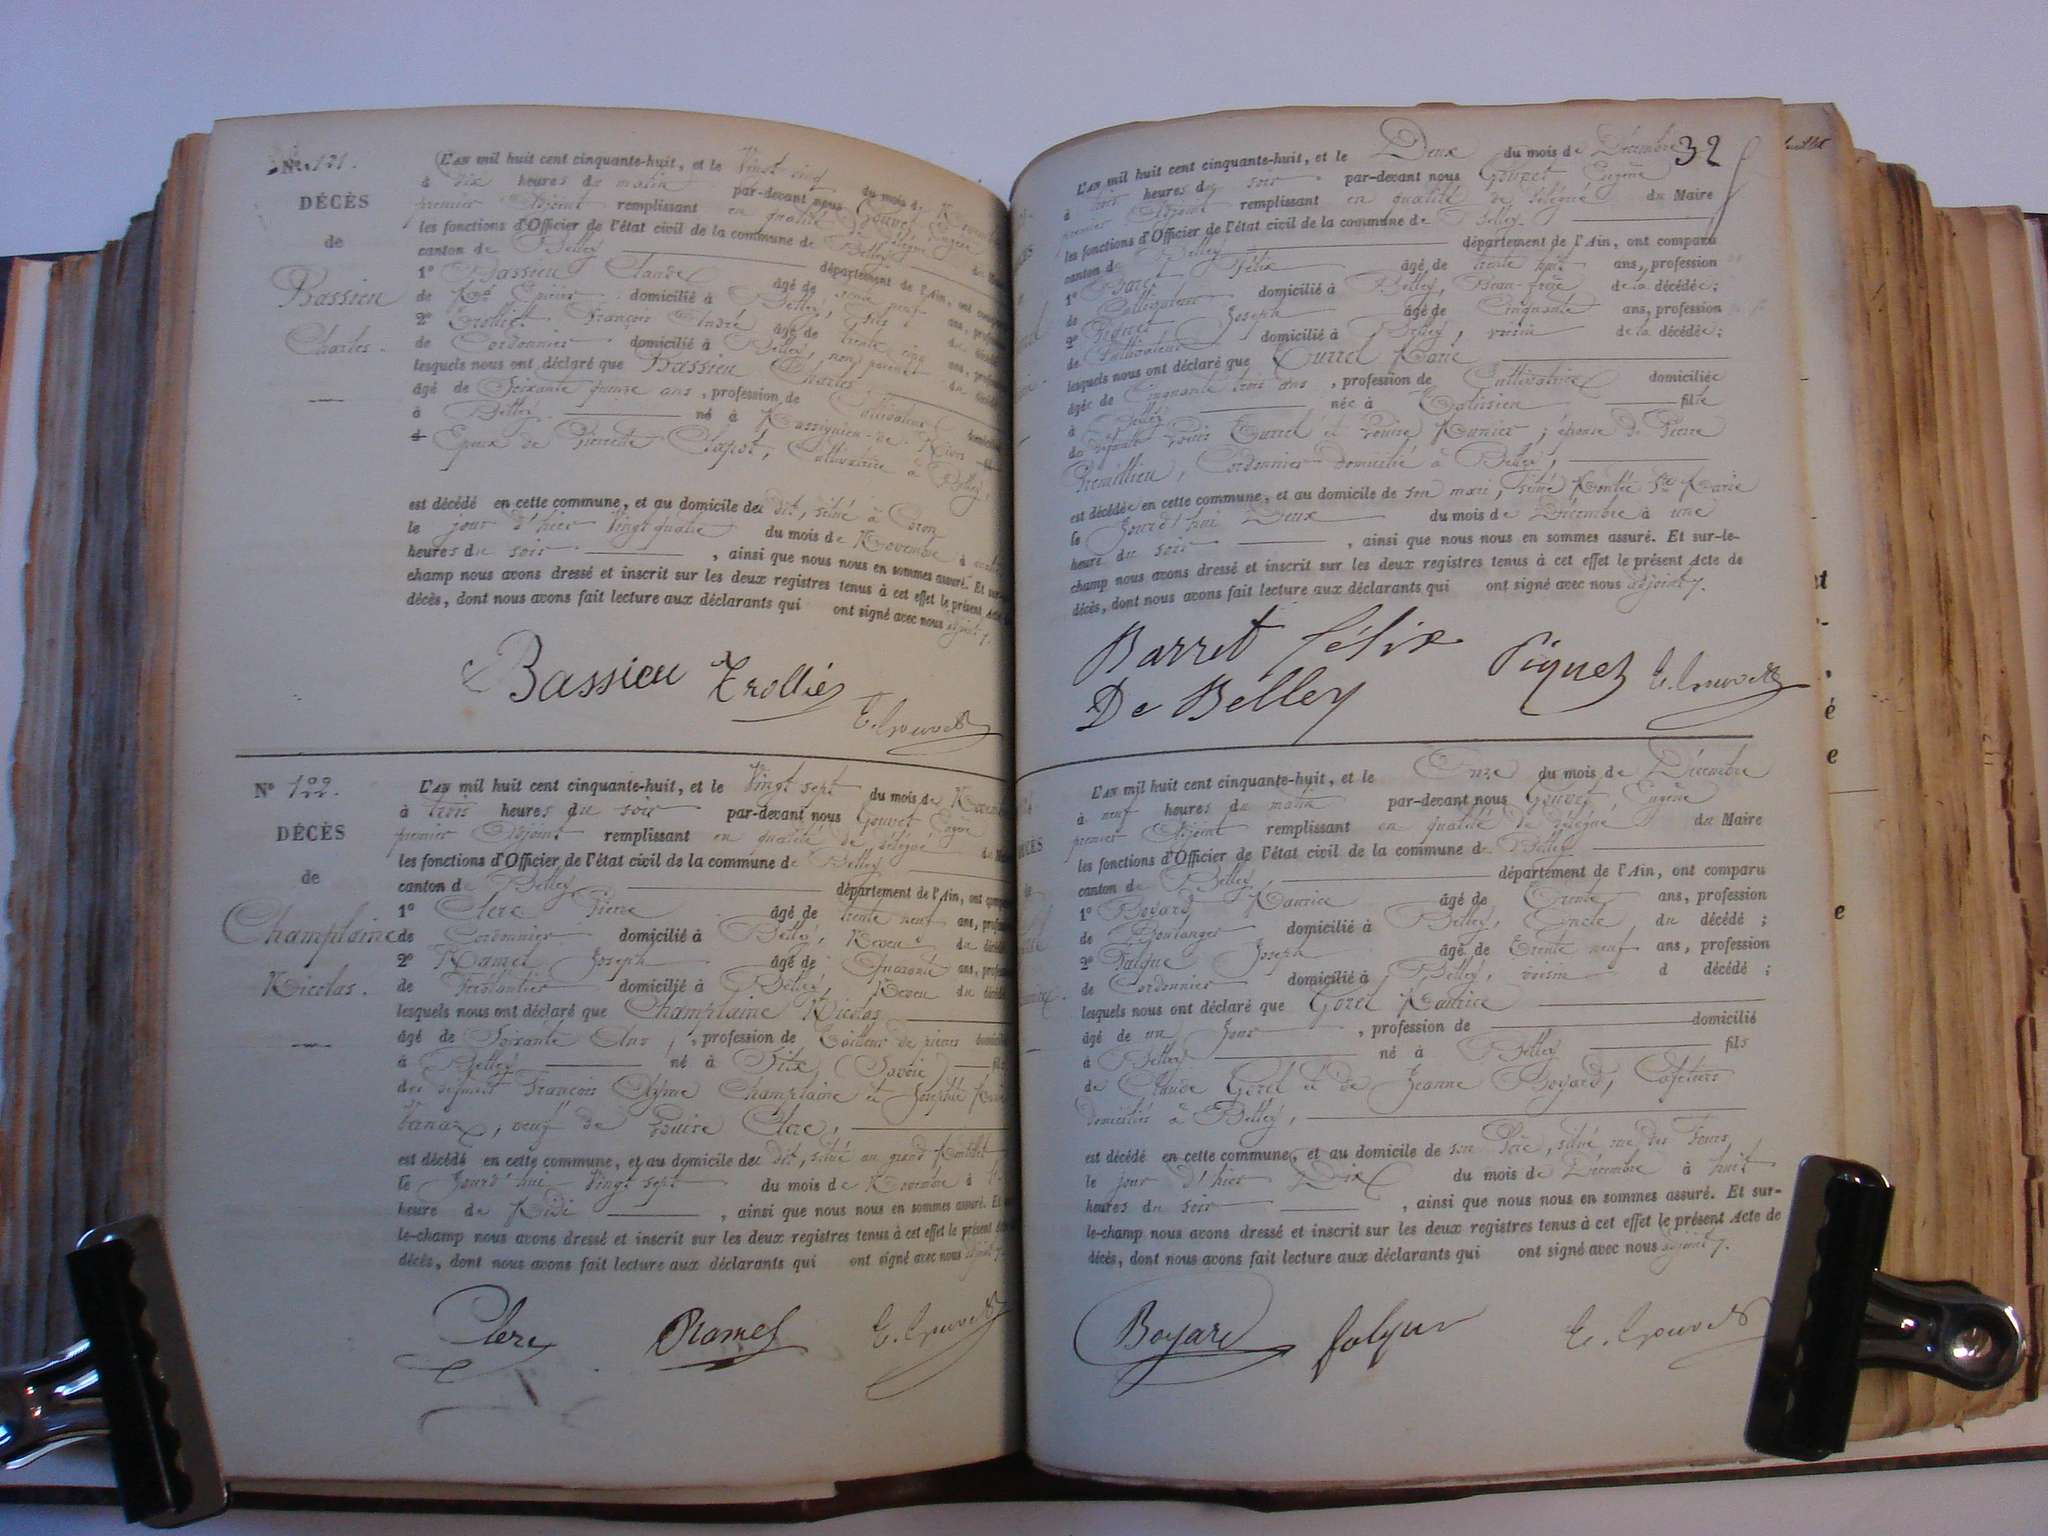 No 121.
DÉCÈS
de
Bassieu
Charles.
L'AN mil huit cent cinquante-huit, et le Vingt cinq du mois de
à dix heures du matin par-devant nous Gouvet, Eugène
premier Adjoint remplissant en qualité de délégué du
les fonctions d'Officier de l'état civil de la commune de Belley
canton de Belley département de l'Ain, ont
1º Bassieu Claude âgé de neuf ans,
de Md Epicier domicilié à Belley, fils du
2º Trollier François André âgé de trente cinq ans,
de Cordonnier domicilié à Belley, non parent du
lesquels nous ont déclaré que Bassieu Charles
âgé de Soixante quinze ans, profession de Cultivateur
à Belley né à Massignieu-de-Rives
Epoux de Pierrette Clapot, Cultivatrice à Belley,
est décédé en cette commune, et au domicile du dit, situé à Coron
le jour d'hier Vingt quatre du mois de Novembre à
heures du soir , ainsi que nous nous en sommes assuré. Et sur-
champ nous avons dressé et inscrit sur les deux registres tenus à cet effet le présent Acte
décès, dont nous avons fait lecture aux déclarants qui ont signé avec nous adjoint.
Bassieu Trollier
E. Gouvet
Nº 122.
DÉCÈS
de
Champlaine
Nicolas.
L'AN mil huit cent cinquante-huit, et le Vingt sept du mois de
à trois heures du soir par-devant nous Gouvet Eugène
premier Adjoint remplissant en qualité de délégué du
les fonctions d'Officier de l'état civil de la commune de Belley
canton de Belley département de l'Ain, ont
1º Clerc Pierre âgé de trente neuf ans,
de Cordonnier domicilié à Belley, Neveu du
2º Ramel Joseph âgé de Quarante ans,
de domicilié à Belley, Neveu du
lesquels nous ont déclaré que Champlaine Nicolas
âgé de Soixante Ans, profession de Tailleur de pierres
à Belley né à Sixt (Savoie) fils
des défunts François Champlaine et Josephte
veuf de Louise Clerc,
est décédé en cette commune, et au domicile du dit, situé au grand
le Jourd'hui Vingt sept du mois de Novembre à
heure de Midi , ainsi que nous nous en sommes assuré. Et
le-champ nous avons dressé et inscrit sur les deux registres tenus à cet effet le présent
décès, dont nous avons fait lecture aux déclarants qui ont signé avec nous adjoint.
Clerc Ramel E. Gouvet
32
L'AN mil huit cent cinquante-huit, et le Deux du mois de Décembre
à trois heures du soir par-devant nous Gouvet Eugène
premier Adjoint remplissant en qualité de délégué du Maire
les fonctions d'Officier de l'état civil de la commune de Belley
canton de Belley département de l'Ain, ont comparu
1º Barret Félix âgé de trente huit ans, profession
de Cultivateur domicilié à Belley, Beau-frère de la décédée;
2º Piguet Joseph âgé de Cinquante ans, profession
de Cultivateur domicilié à Belley, voisin de la décédée;
lesquels nous ont déclaré que Curret Marie
âgée de Cinquante trois ans, profession de Cultivatrice domiciliée
à Belley née à fille
de défunts Louis Curret et Louise Munier; épouse de Pierre
Cordonnier domicilié à Belley,
est décédée en cette commune, et au domicile de son mari, situé Montée Ste Marie
le Jourd'hui Deux du mois de Décembre à une
heure du soir , ainsi que nous nous en sommes assuré. Et sur-le-
champ nous avons dressé et inscrit sur les deux registres tenus à cet effet le présent Acte de
décès, dont nous avons fait lecture aux déclarants qui ont signé avec nous adjoint.
Barret félix Piguet E. Gouvet
De Belley
L'AN mil huit cent cinquante-huit, et le Onze du mois de Décembre
à neuf heures du matin par-devant nous Gouvet, Eugène
premier Adjoint remplissant en qualité de délégué du Maire
les fonctions d'Officier de l'état civil de la commune de Belley
canton de Belley, département de l'Ain, ont comparu
1º Boyard Maurice âgé de Trente ans, profession
de Boulanger domicilié à Belley, Oncle du décédé;
2º Falque Joseph âgé de Trente neuf ans, profession
de Cordonnier domicilié à Belley, voisin d décédé;
lesquels nous ont déclaré que Gorel Maurice
âgé de un Jour , profession de domicilié
à Belley né à Belley fils
de Claude Gorel et de Jeanne Boyard, Cafetiers
domiciliés à Belley,
est décédé en cette commune, et au domicile de son Père, situé rue des Fours
le jour d'hier Dix du mois de Décembre à huit
heures du soir , ainsi que nous nous en sommes assuré. Et sur-
le-champ nous avons dressé et inscrit sur les deux registres tenus à cet effet le présent Acte de
décès, dont nous avons fait lecture aux déclarants qui ont signé avec nous adjoint.
Boyard falque E. Gouvet